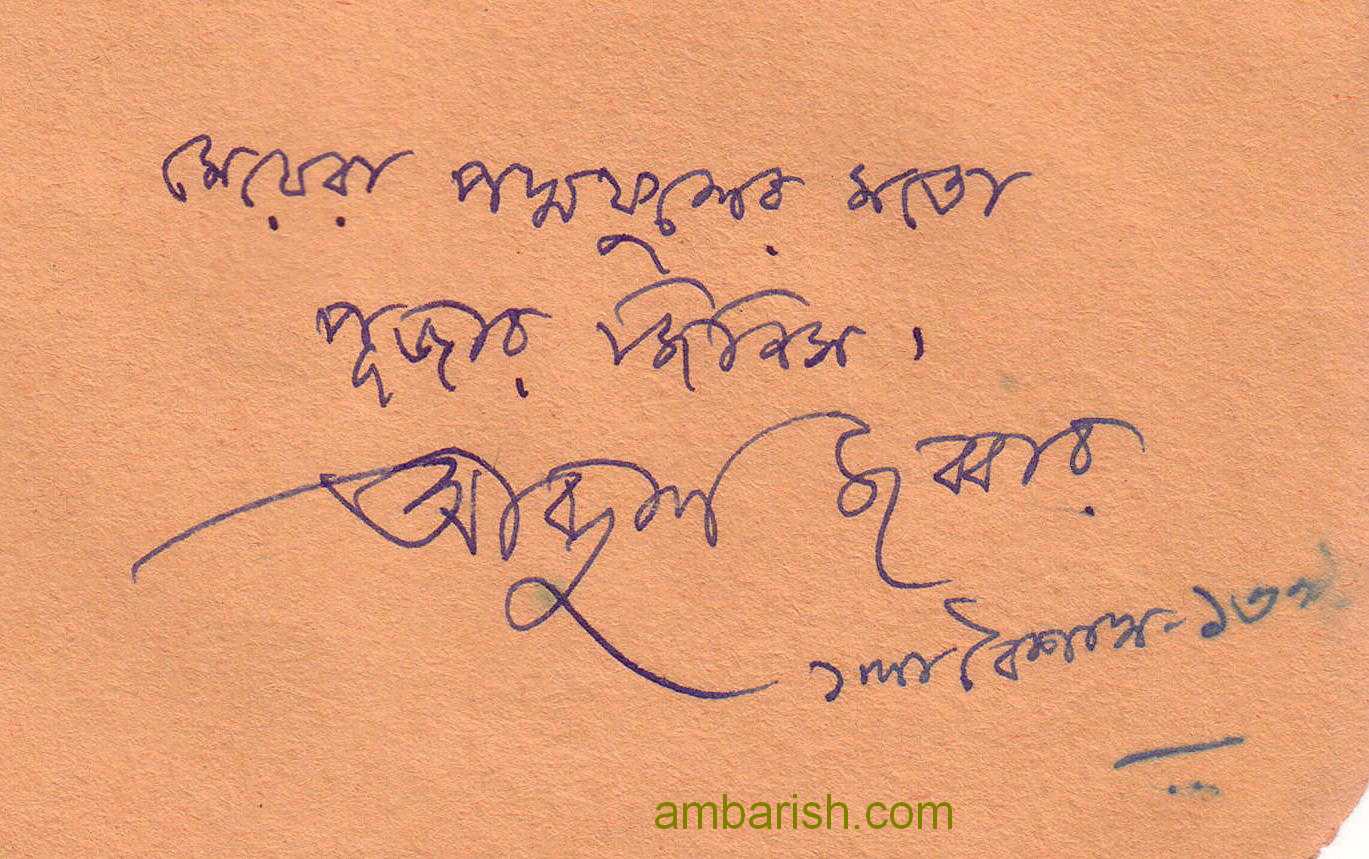 মেয়েরা পদ্মফুলের মতো
পূজার জিনিস।
আব্দুল জব্বার
১লা বৈশাখ - ১৩৯
ambarish.com